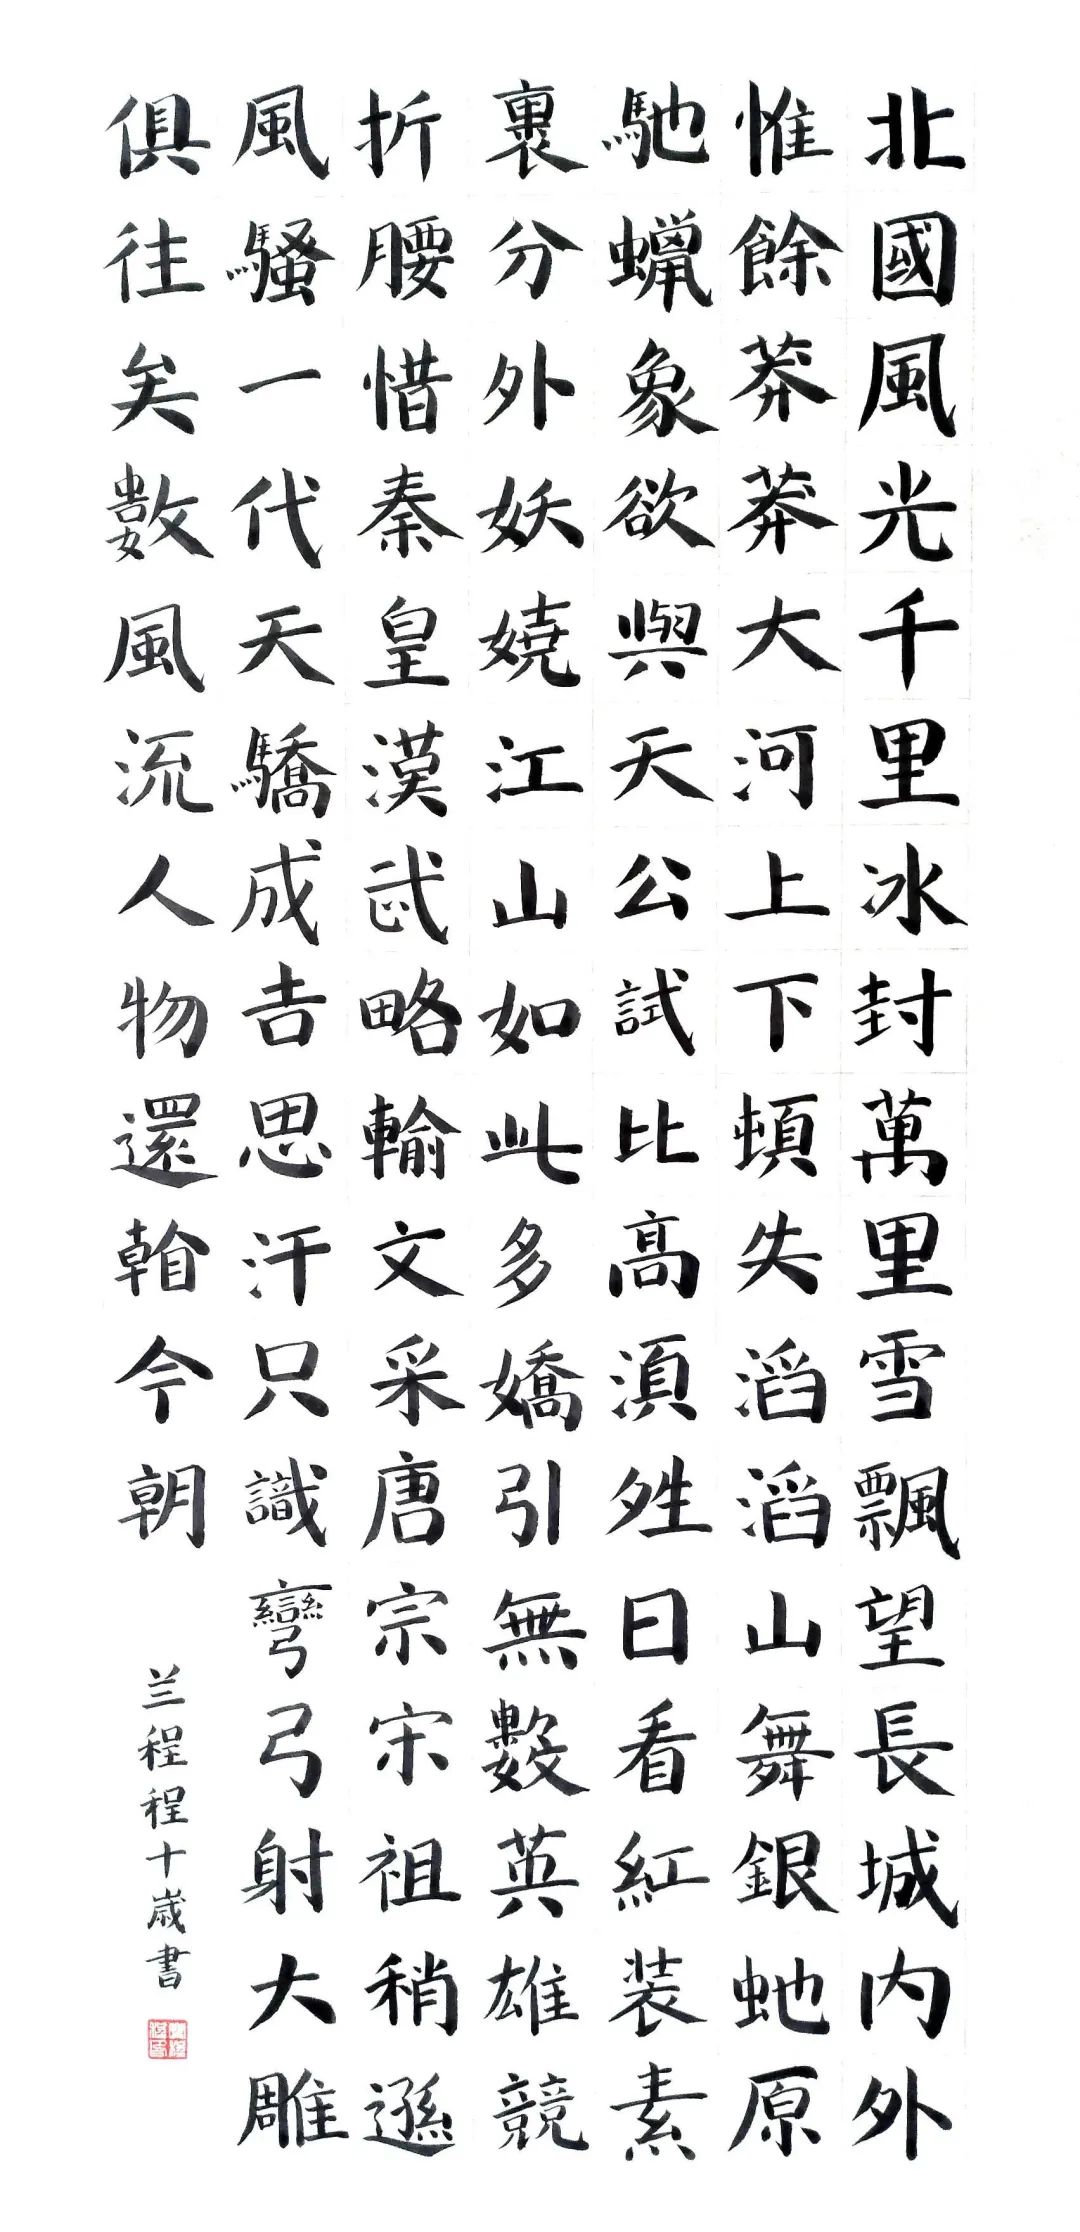 北國風光千里冰封萬里雪飄望長城内外
惟餘莽莽大河上下頓失滔滔山舞銀虵原
馳蠟象欲與天公試比高湏夝日看紅装素
裹分外妖嬈江山如此多嬌引無數英雄競
折腰惜秦皇漢武略輸文采唐宗宋祖稍遜
風騷一代天驕成吉思汗只識彎弓射大雕
俱往矣數風流人物還看今朝
兰程程十歲書